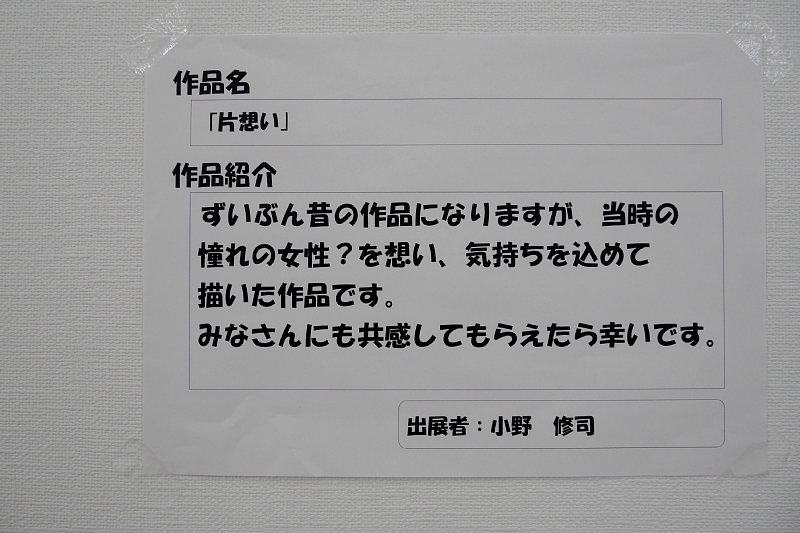 作品名
「片想い」
作品紹介
ずいぶん昔の作品になりますが、当時の
憧れの女性？を想い、気持ちを込めて
描いた作品です。
みなさんにも共感してもらえたら幸いです。
出展者：小野　修司